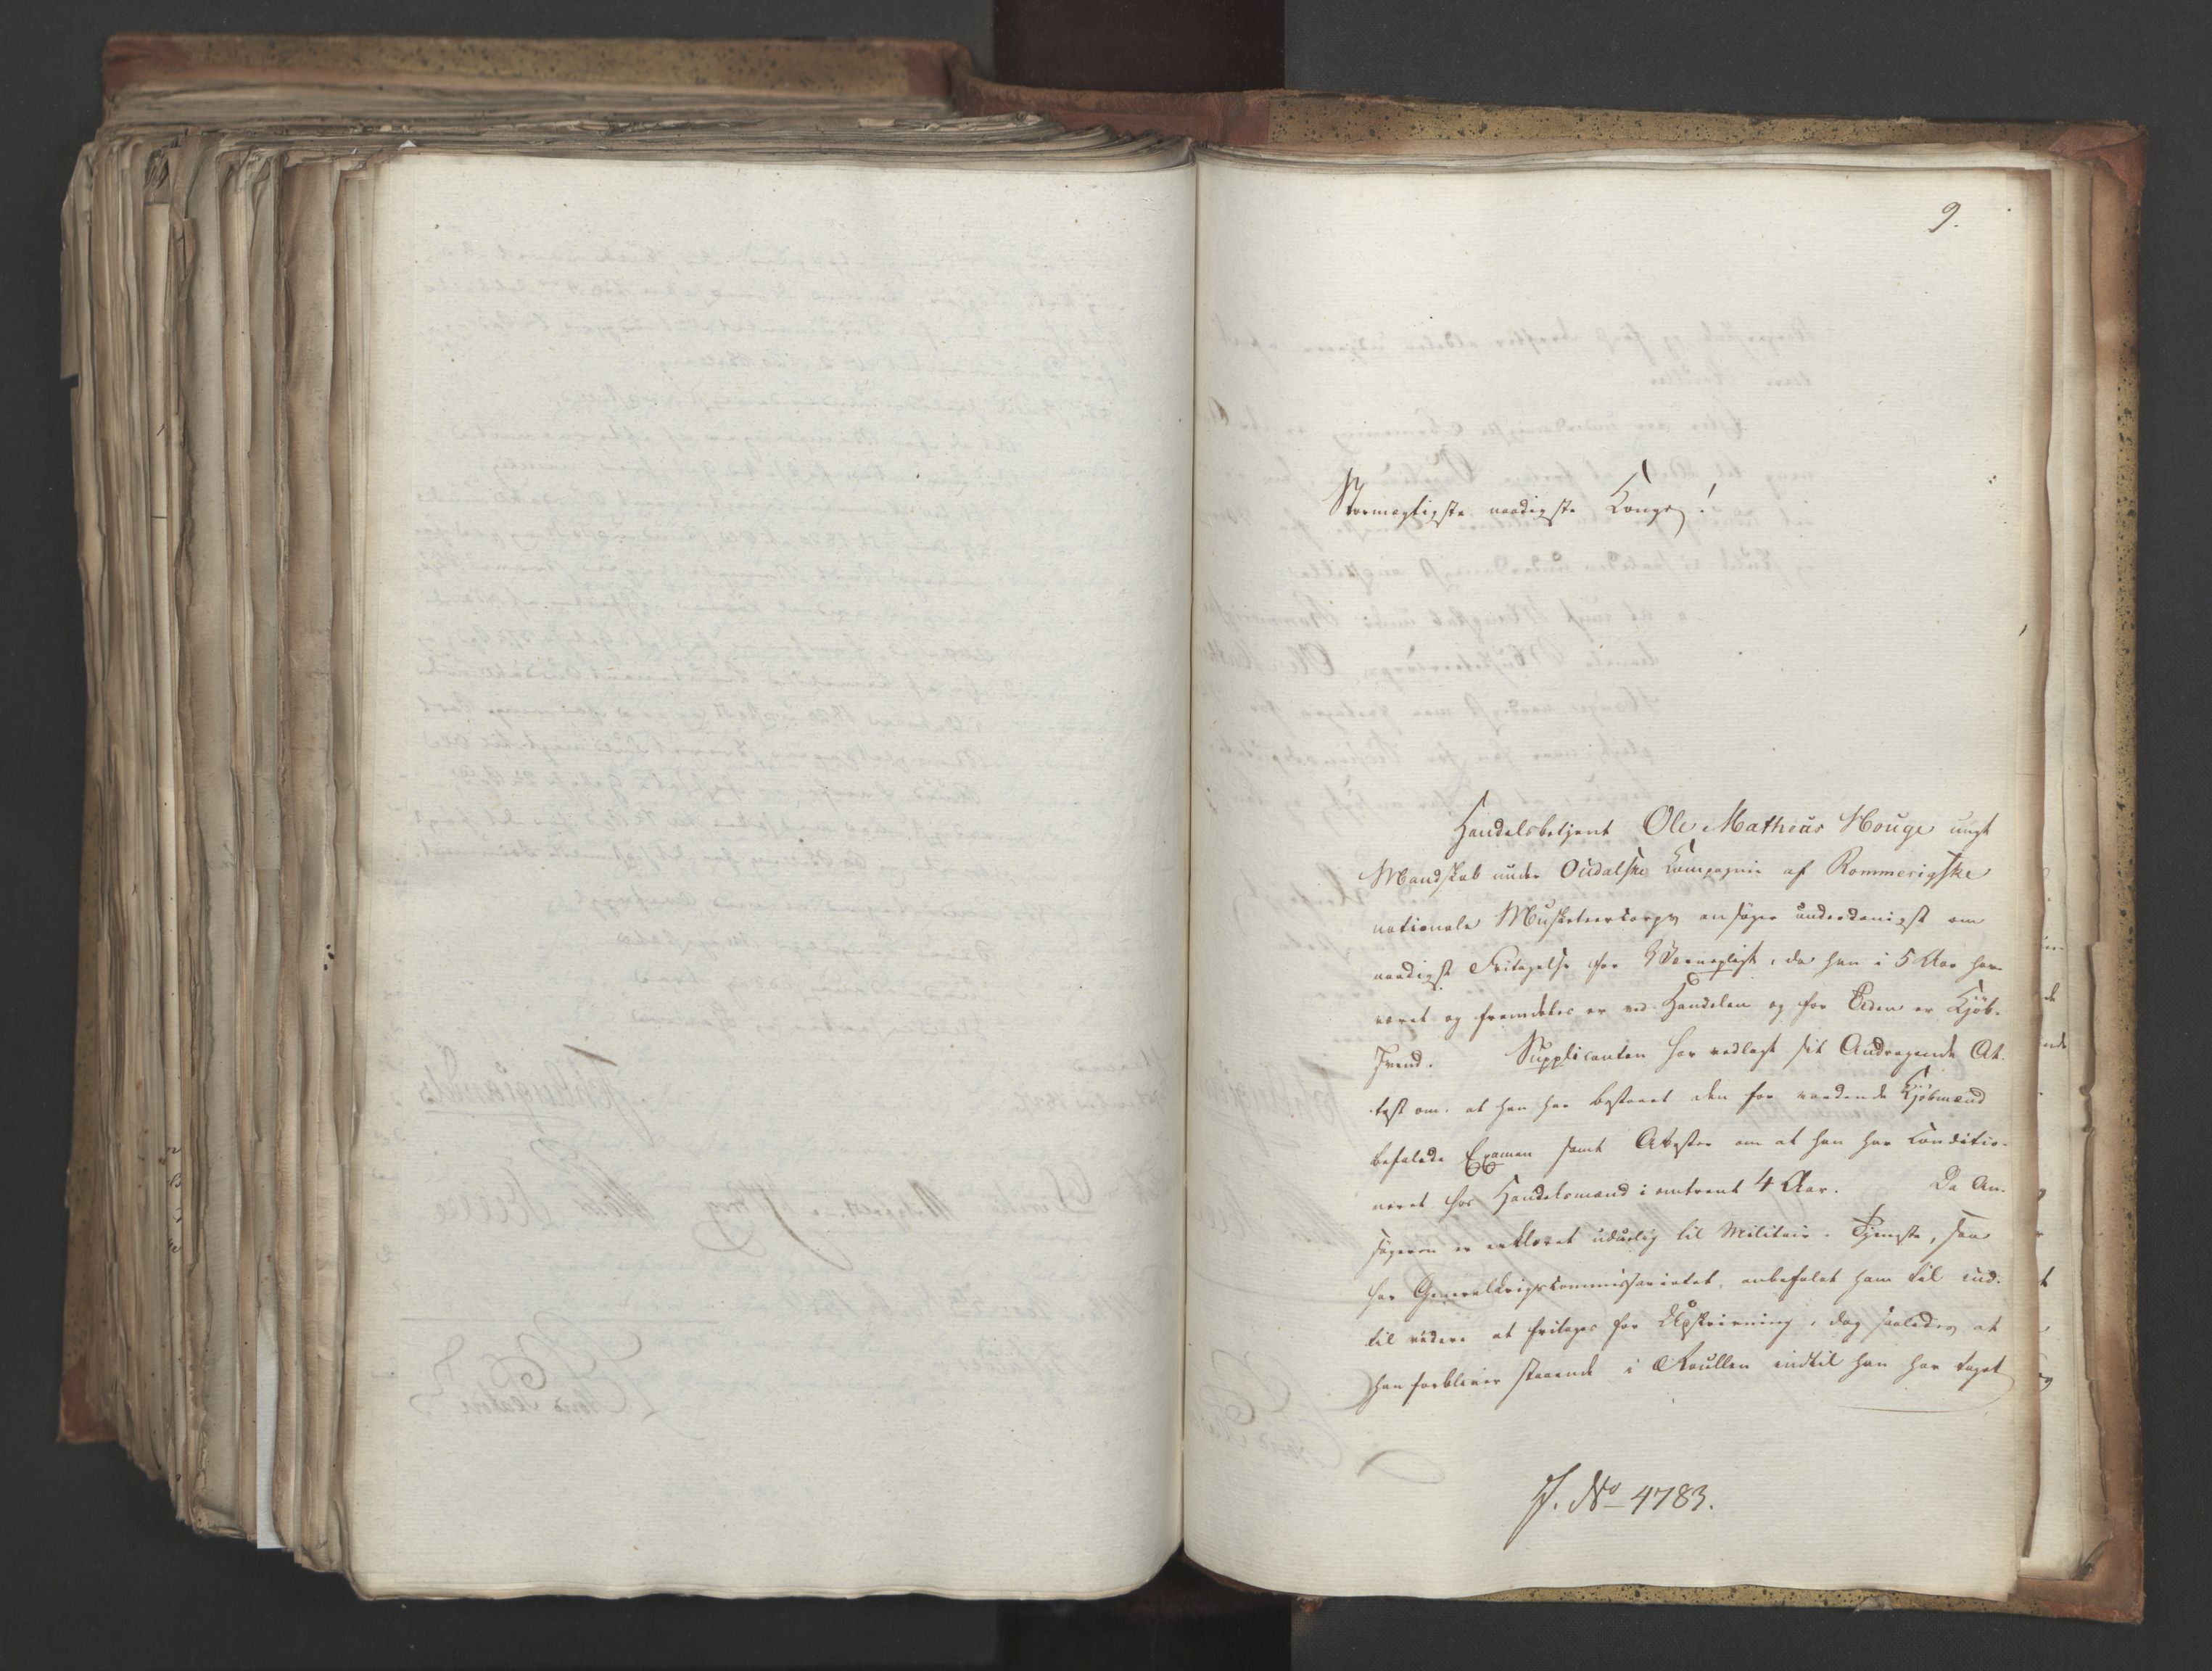 9.
Stormægtigste naadigste Konge!
Handelsbetjent Ole Mathias Houge ungt
Mandskab under Oudalske Compagnie af Rommerigske
nationale Musketeerkorps ansøger underdanigst om
naadigst Fritagelse for Værnepligt, da han i 5 Aar har
været og fremdeles er ved Handelen og for Tiden er Kjøb-
svend. Supplicanten har vedlagt sit Andragende At-
test om at han har bestaaet den for vordende Kjøbmænd
befalede Examen samt Attester om at han har Conditio-
neret hos Handelsmænd i omtrent 4 Aar. Da An-
søgeren er erklæret uduelig til Militair-Tjeneste, saa
har Generalkrigscommissariatet anbefalet ham til ind-
til videre at fritages for Udskrivning, dog saaledes at
han forbliver staaende i Roullen indtil han har taget
J. No 4783.